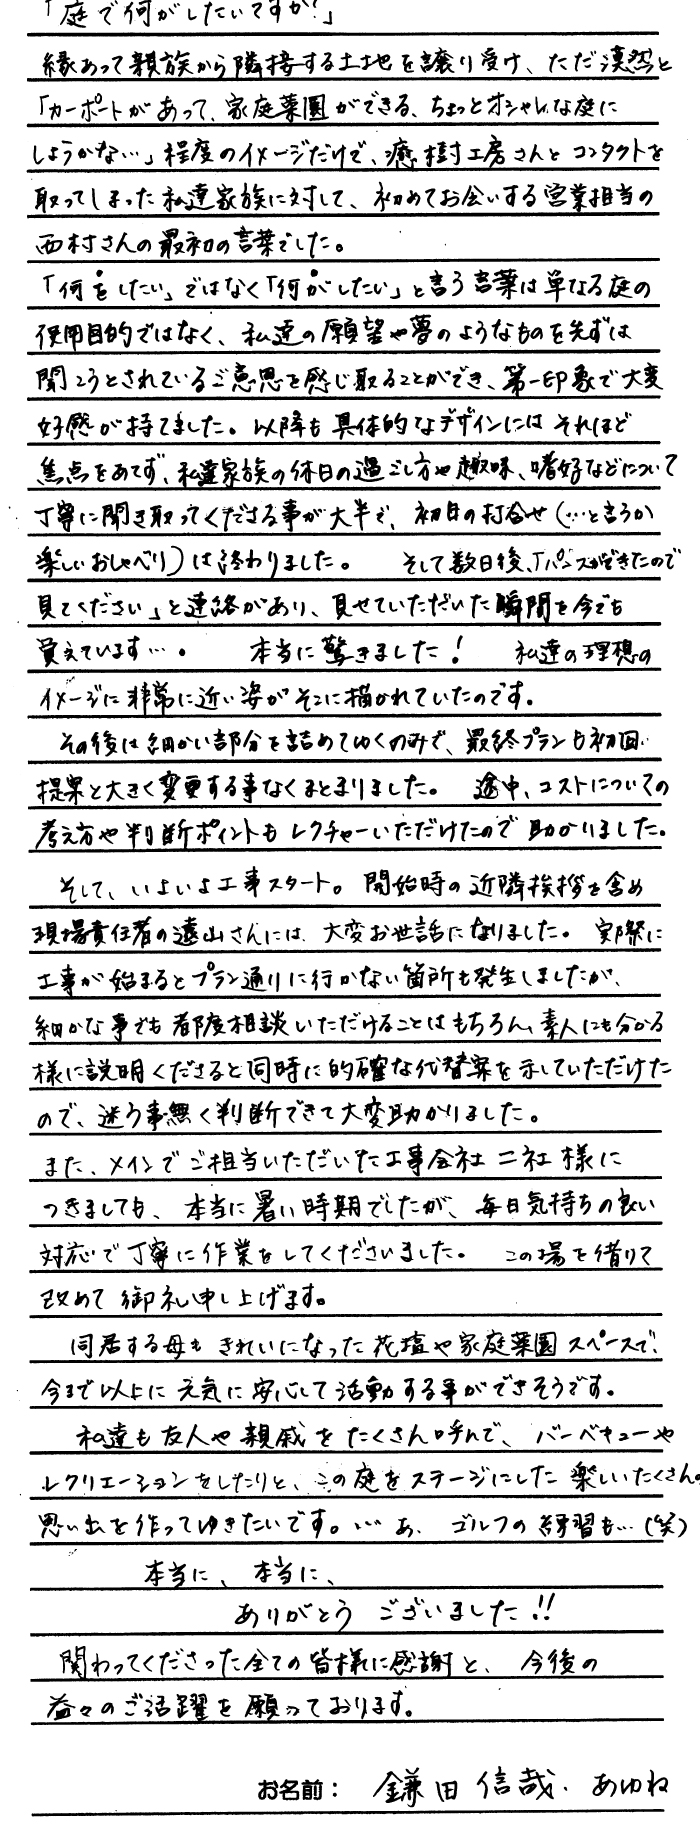 「庭で何がしたいですか?」
縁あって親族から隣接する土地を譲り受け、ただ漠然と
「カーポートがあって、家庭菜園ができる、ちょっとオシャレな庭に
しようかな…」程度のイメージだけで、癒樹工房さんとコンタクトを
取ってしまった私達家族に対して、初めてお会いする営業担当の
西村さんの最初の言葉でした。
「何をしたい」ではなく「何がしたい」と言う言葉は単なる庭の
使用目的ではなく、私達の願望や夢のようなものを先ずは
聞こうとされているご意思を感じ取ることができ、第一印象で大変
好感が持てました。以降も具体的なデザインにはそれほど
焦点をあてず、私達家族の休日の過ごし方や趣味、嗜好などについて
丁寧に聞き取ってくださる事が大半で、初日の打合せ(…と言うか
楽しいおしゃべり)は終わりました。 そして数日後、「パースができたので
見てください」と連絡があり、見せていただいた瞬間を今でも
覚えています…。 本当に驚きました! 私達の理想の
イメージに非常に近い姿がそこに描かれていたのです。
その後は細かい部分を詰めてゆくのみで、最終プランも初回
提案と大きく変更する事なくまとまりました。 途中、コストについての
考え方や判断ポイントもレクチャーいただけたので助かりました。
そして、いよいよ工事スタート。開始時の近隣挨拶を含め
現場責任者の遠山さんには、大変お世話になりました。 実際に
工事が始まるとプラン通りに行かない箇所も発生しましたが、
細かな事でも都度相談いただけることはもちろん、素人にも分かる
様に説明くださると同時に的確な代替案を示していただけた
ので、迷う事無く判断できて大変助かりました。
また、メインでご担当いただいた工事会社二社様に
つきましても、本当に暑い時期でしたが、毎日気持ちの良い
対応で丁寧に作業をしてくださいました。 この場を借りて
改めて御礼申し上げます。
同居する母もきれいになった花壇や家庭菜園スペースで、
今まで以上に元気に安心して活動する事ができそうです。
私達も友人や親戚をたくさん呼んで、バーベキューや
レクリエーションをしたりと、この庭をステージにした楽しいたくさんの
思い出を作ってゆきたいです。…あ、ゴルフの練習も…(笑)
本当に、本当に、
ありがとうございました!!
関わってくださった全ての皆様に感謝と、今後の
益々のご活躍を願っております。
お名前: 鎌田信哉・あゆね